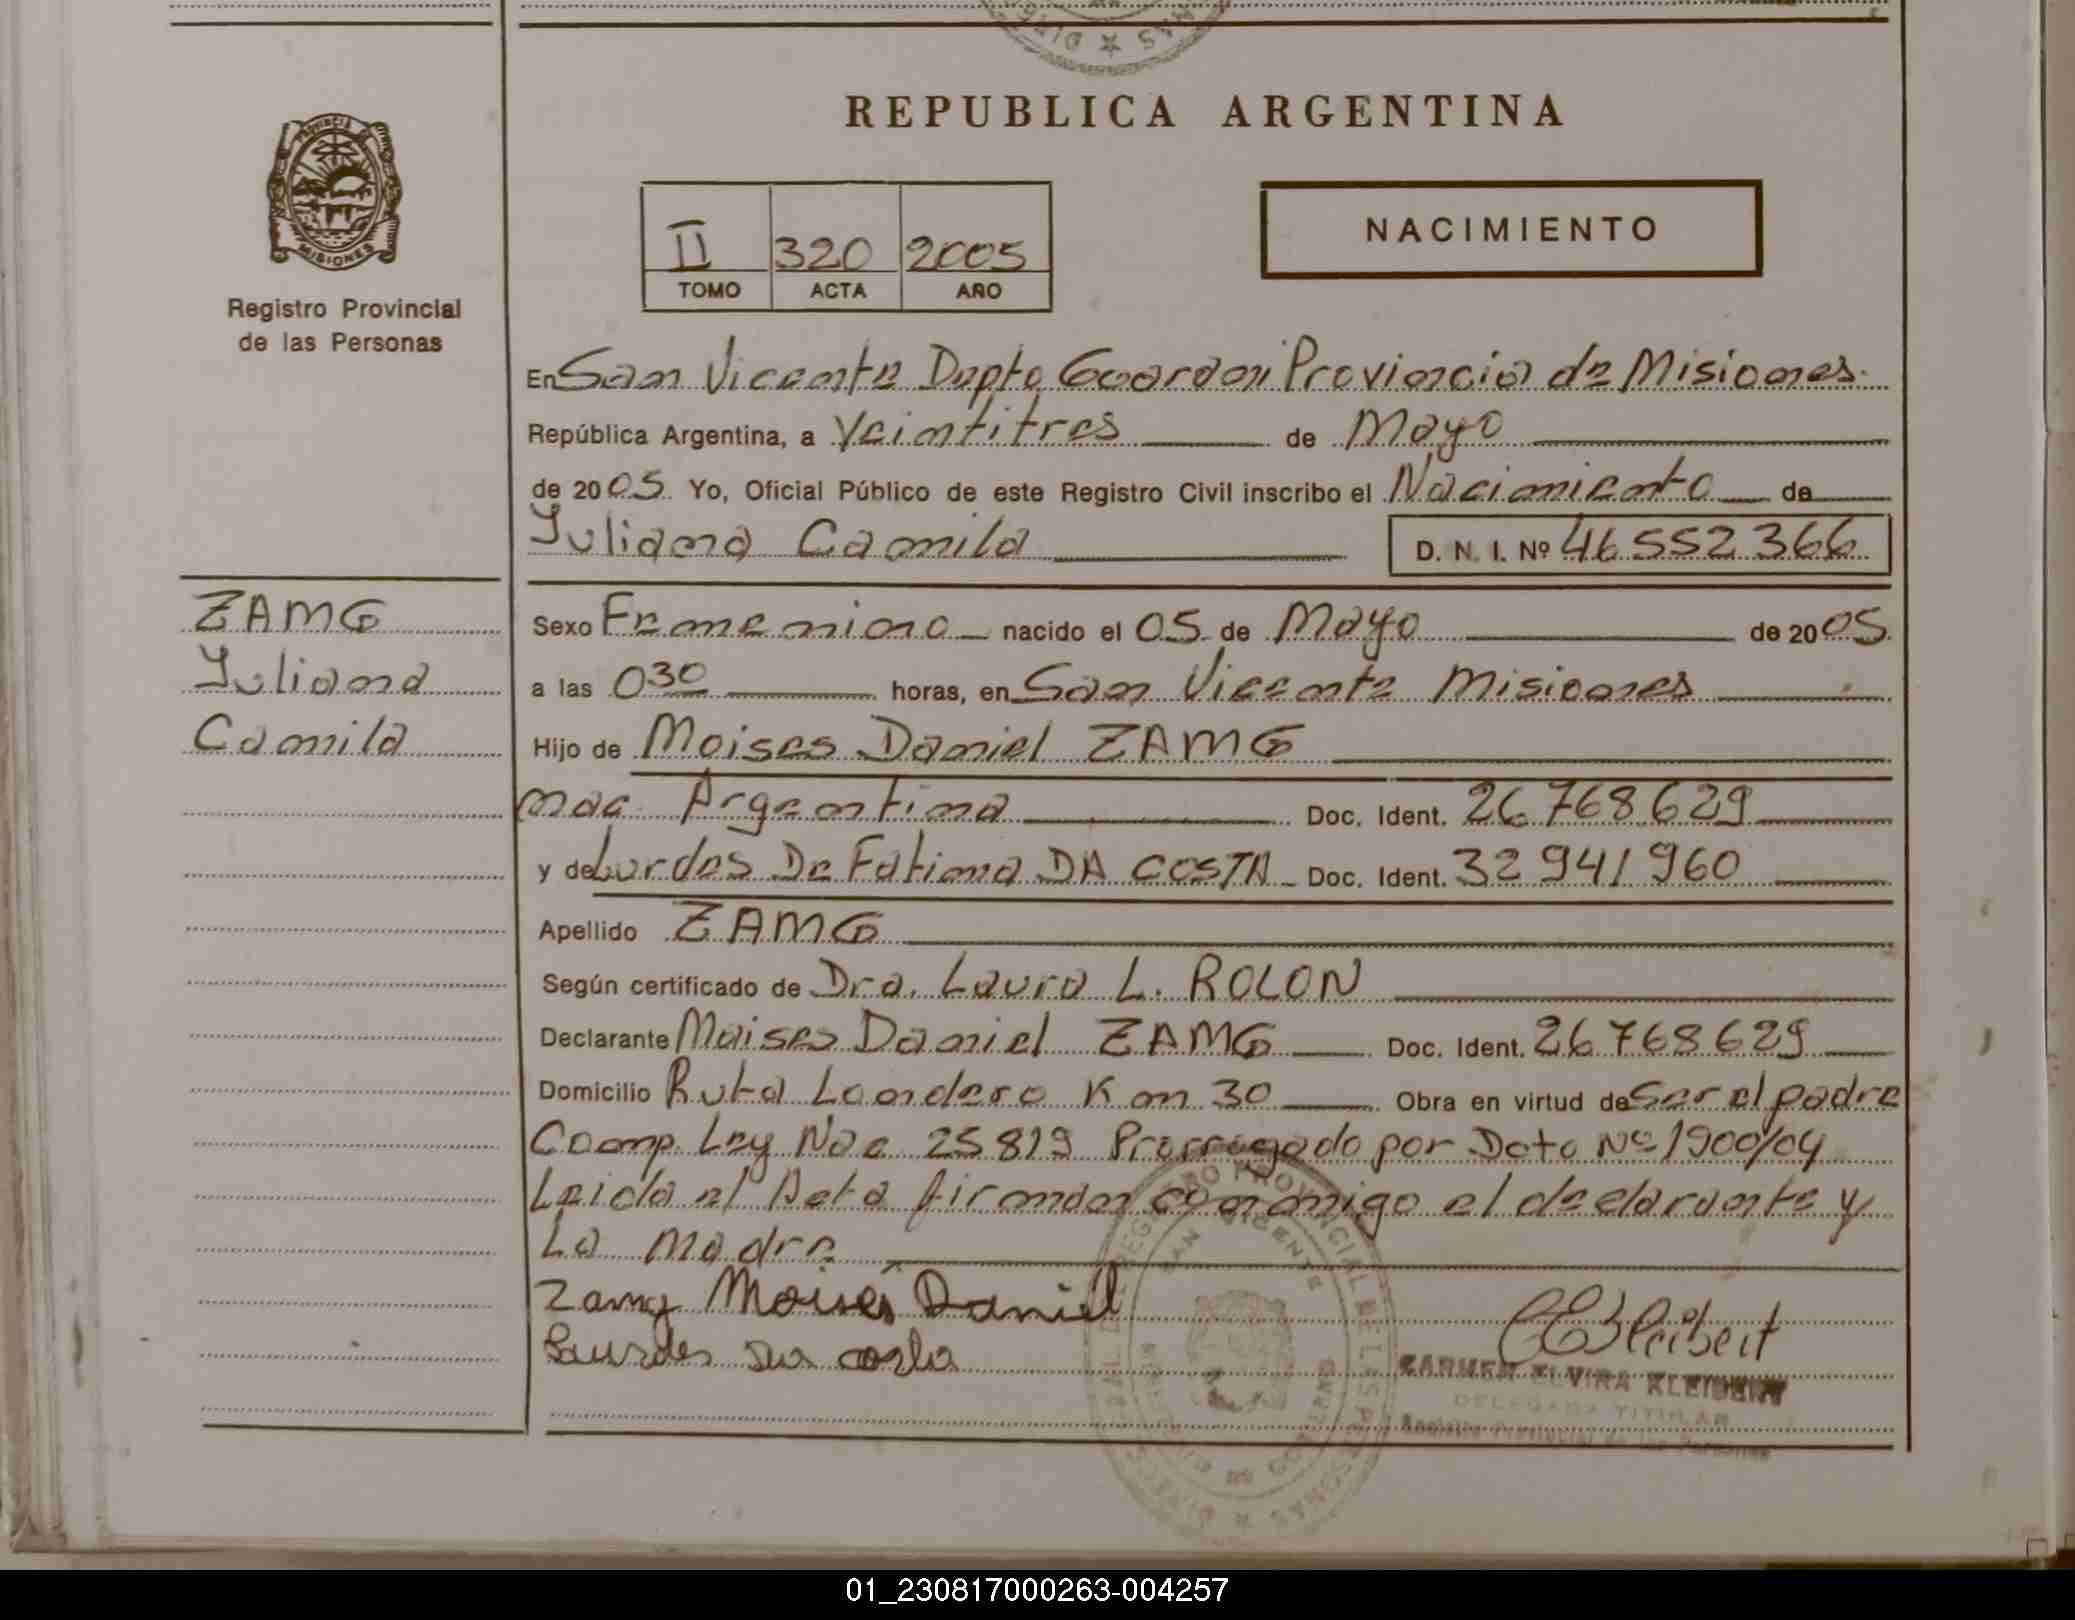 REPUBLICA ARGENTINA
PROVINCIA DE
MISIONES
Registro Provincial
de las Personas
II 320 2005
TOMO ACTA AÑO
NACIMIENTO
En San Vicente Depto Guarani Provincia de Misiones.
República Argentina, a Veintitres de Mayo
de 2005. Yo, Oficial Público de este Registro Civil inscribo el Nacimiento de
Yuliana Camila D. N. I. Nº 46552366
ZAMG
Yuliana
Camila
Sexo Femenino nacido el 05 de Mayo de 2005.
a las 030 horas, en San Vicente Misiones
Hijo de Moises Daniel ZAMG
nac. Argentina Doc. Ident. 26768629
y de Lurdes De Fatima DA COSTA Doc. Ident. 32941960
Apellido ZAMG
Según certificado de Dra. Laura L. ROLON
Declarante Moises Daniel ZAMG Doc. Ident. 26768629
Domicilio Ruta Landero Km 30 Obra en virtud de Ser el padre
Comp. Ley Nac 25819 Prorrogado por Dcto Nº 1900/04
Leida el Acta firman conmigo el declarante y
La Madre
Zamg Moises Daniel
Lurdes Da costa
CEKleibert
CARMEN ELVIRA KLEIBERT
DELEGADA TITULAR
Registro Provincial de las Personas
01_230817000263-004257